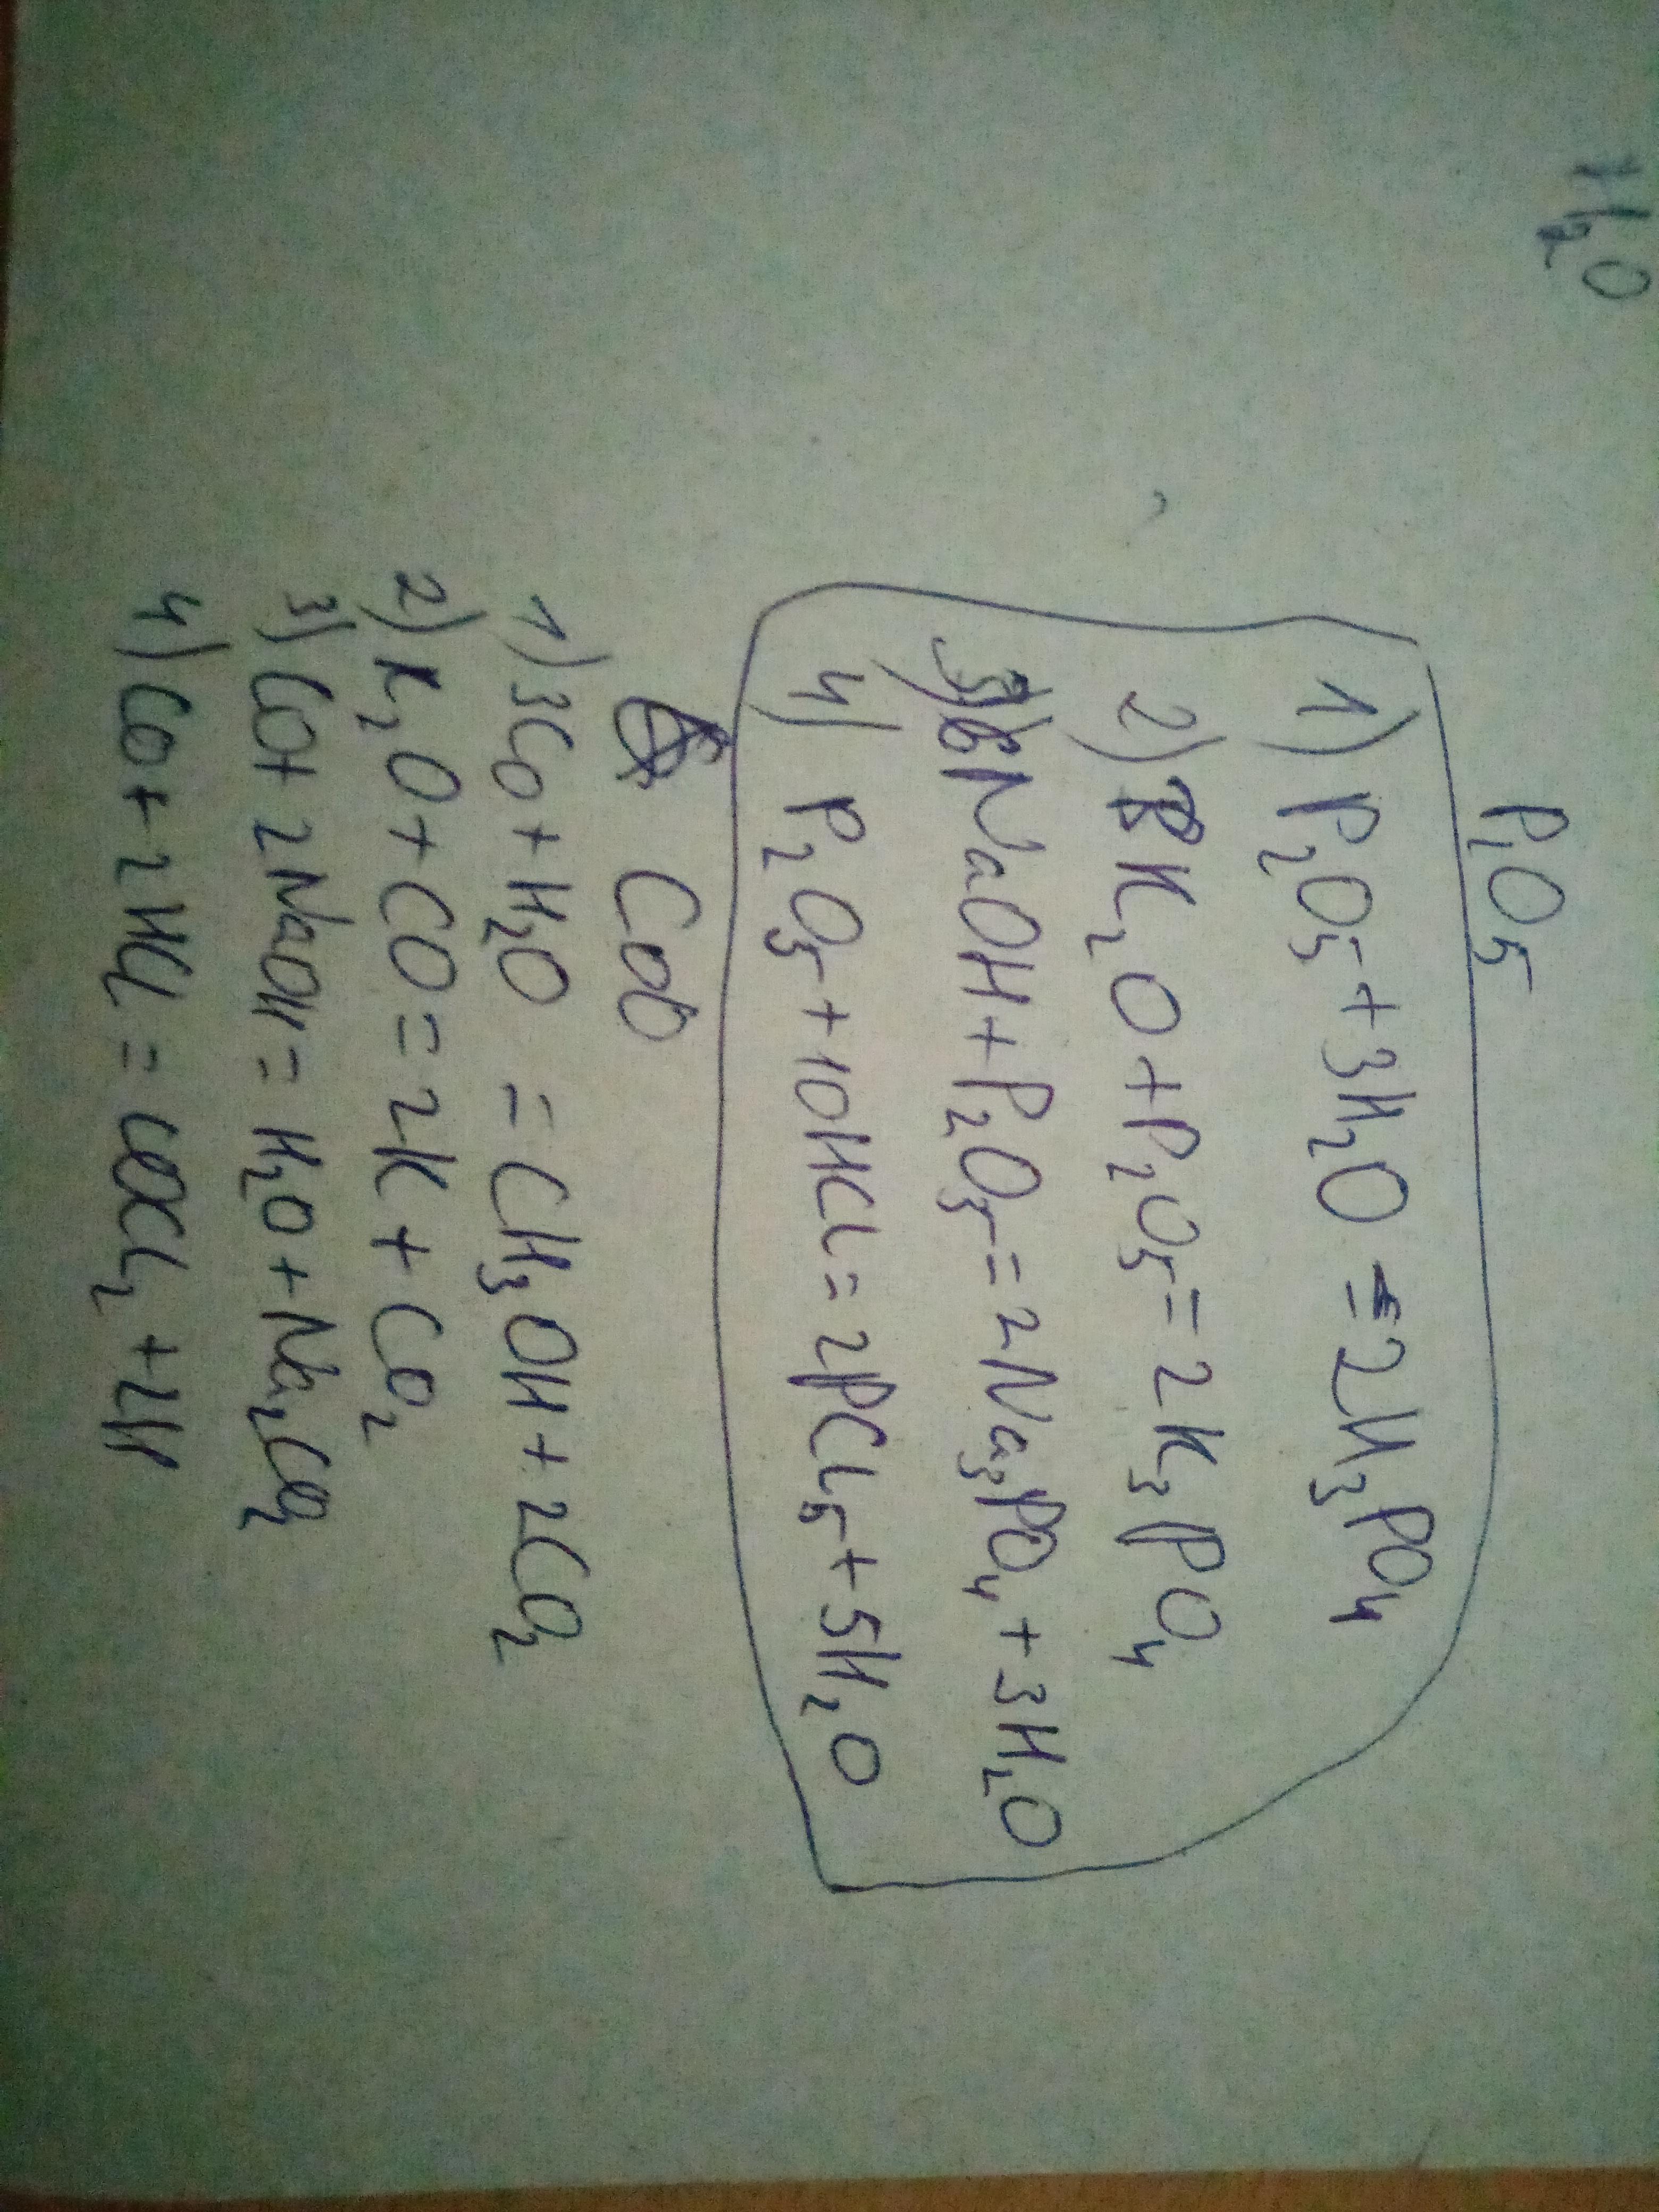 H₂O
P₂O₅
1) P₂O₅ + 3H₂O = 2H₃PO₄
2) K₂O + P₂O₅ = 2K₃PO₄
3) 6NaOH + P₂O₅ = 2Na₃PO₄ + 3H₂O
4) P₂O₅ + 10HCl = 2PCl₅ + 5H₂O
CO
1) 3CO + H₂O = CH₃OH + 2CO₂
2) K₂O + CO = 2K + CO₂
3) CO + 2NaOH = H₂O + Na₂CO₂
4) CO + 2HCl = COCl₂ + 2H